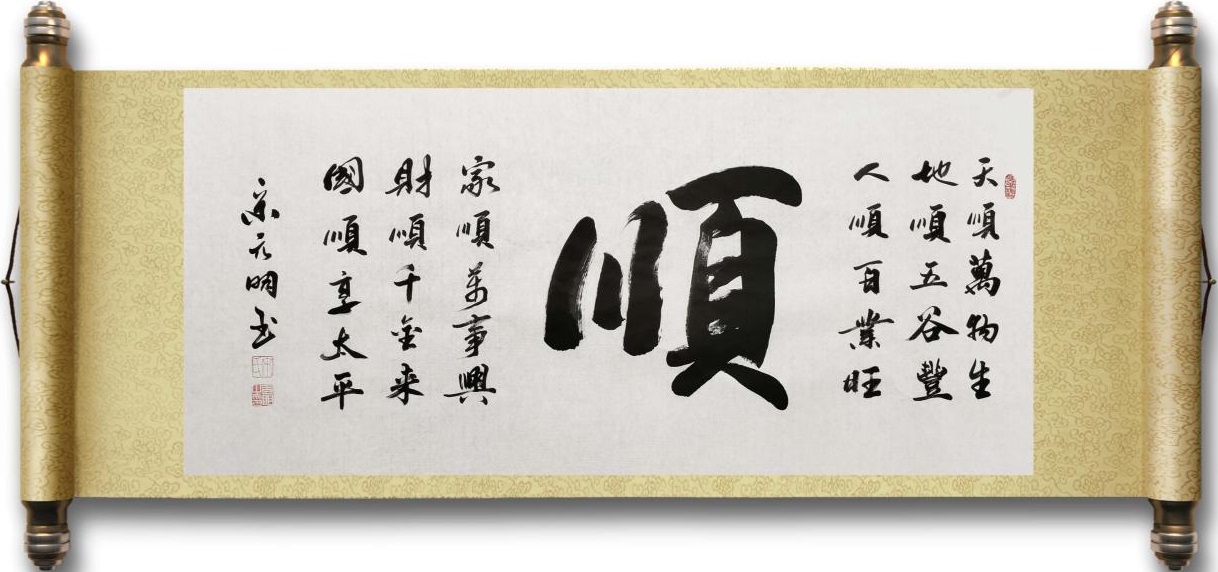 天順萬物生
地順五谷豐
人順百業旺
順
家順萬事興
財順千金来
國順享太平